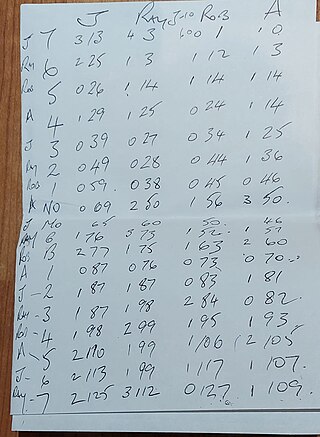 J RAY J010 ROB A
J 7 3 13 4 3 1 1 0
RAY 6 2 25 1 3 1 12 1 3
ROB 5 0 26 1 14 1 14 1 14
A 4 1 29 1 25 0 24 1 14
J 3 0 39 0 27 0 34 1 25
RAY 2 0 49 0 28 0 44 1 36
ROB 1 0 59. 0 38 0 45 0 46
A NO 0 69 2 50 1 56 3 50.
J MO 65 60 50. 46
RAY 1 76 3 73 1 52 1 57
ROB 2 77 1 75 1 63 2 60
A 1 0 87 0 76 0 73 0 70.
J - 2 1 87 1 87 0 83 1 81
RAY - 3 1 87 1 98 2 84 0 82.
ROB - 4 1 98 2 99 1 95 1 93
A - 5 2 110 1 99 1 106 2 105
J - 6 2 113 1 99 1 117 1 107.
RAY - 7 2 125 3 112 0 127 1 109.